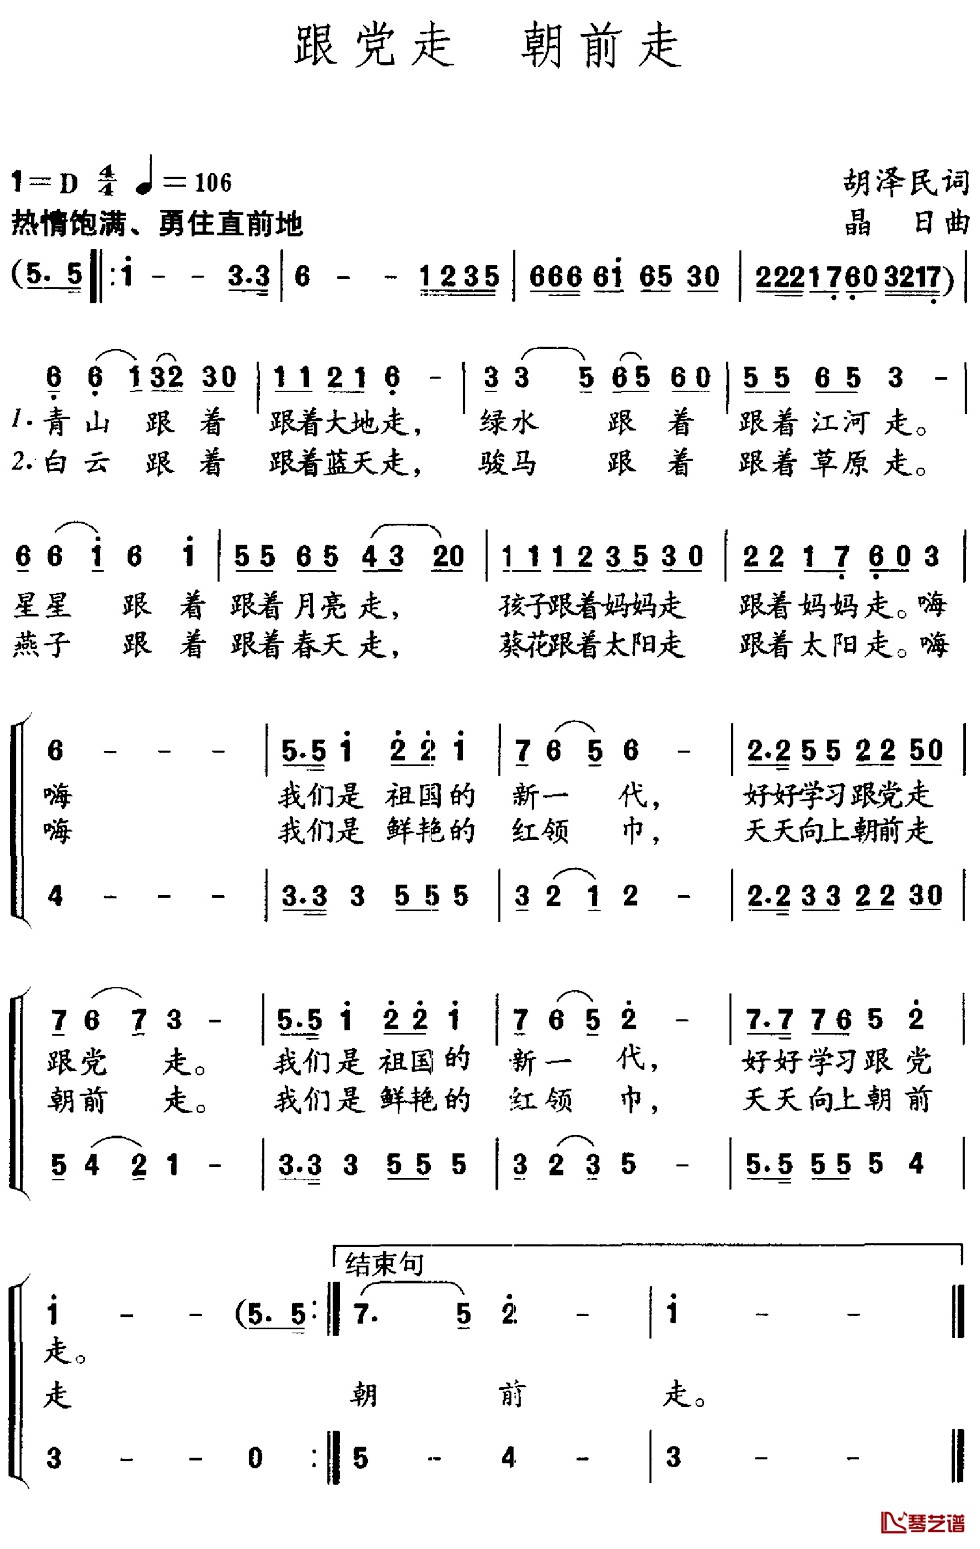 跟党走 朝前走
1=D 4/4 ♩=106 胡泽民词
热情饱满、勇住直前地 晶 日曲
(5. 5 ‖: i - - 3.3 | 6 - - 1235 | 666 6i 65 30 | 2221760 3217) |
6 6 132 30 | 11 21 6 - | 3 3 5 65 60 | 55 65 3 - |
1. 青山 跟着 跟着大地走, 绿水 跟着 跟着江河走。
2. 白云 跟着 跟着蓝天走, 骏马 跟着 跟着草原走。
6 6 i 6 i | 55 65 43 20 | 111235 30 | 22 17 60 3
星星 跟着 跟着月亮走, 孩子跟着妈妈走 跟着妈妈走。嗨
燕子 跟着 跟着春天走, 葵花跟着太阳走 跟着太阳走。嗨
6 - - - | 5.5 i 22 i | 7 6 5 6 - | 2.2 55 22 50
嗨 我们是 祖国的 新一 代, 好好学习跟党走
嗨 我们是 鲜艳的 红领 巾, 天天向上朝前走
4 - - - | 3.3 3 55 5 | 3 2 1 2 - | 2.2 33 22 30
7 6 7 3 - | 5.5 i 22 i | 7 6 5 2 - | 7.7 76 5 2
跟党 走。 我们是 祖国的 新一 代, 好好学习跟党
朝前 走。 我们是 鲜艳的 红领 巾, 天天向上朝前
5 4 2 1 - | 3.3 3 55 5 | 3 2 3 5 - | 5.5 55 5 4
结束句
i - - (5. 5 :‖ 7. 5 2 - | i - - - ‖
走。
走 朝 前 走。
3 - - 0 :‖ 5 - 4 - | 3 - - - ‖
琴艺谱